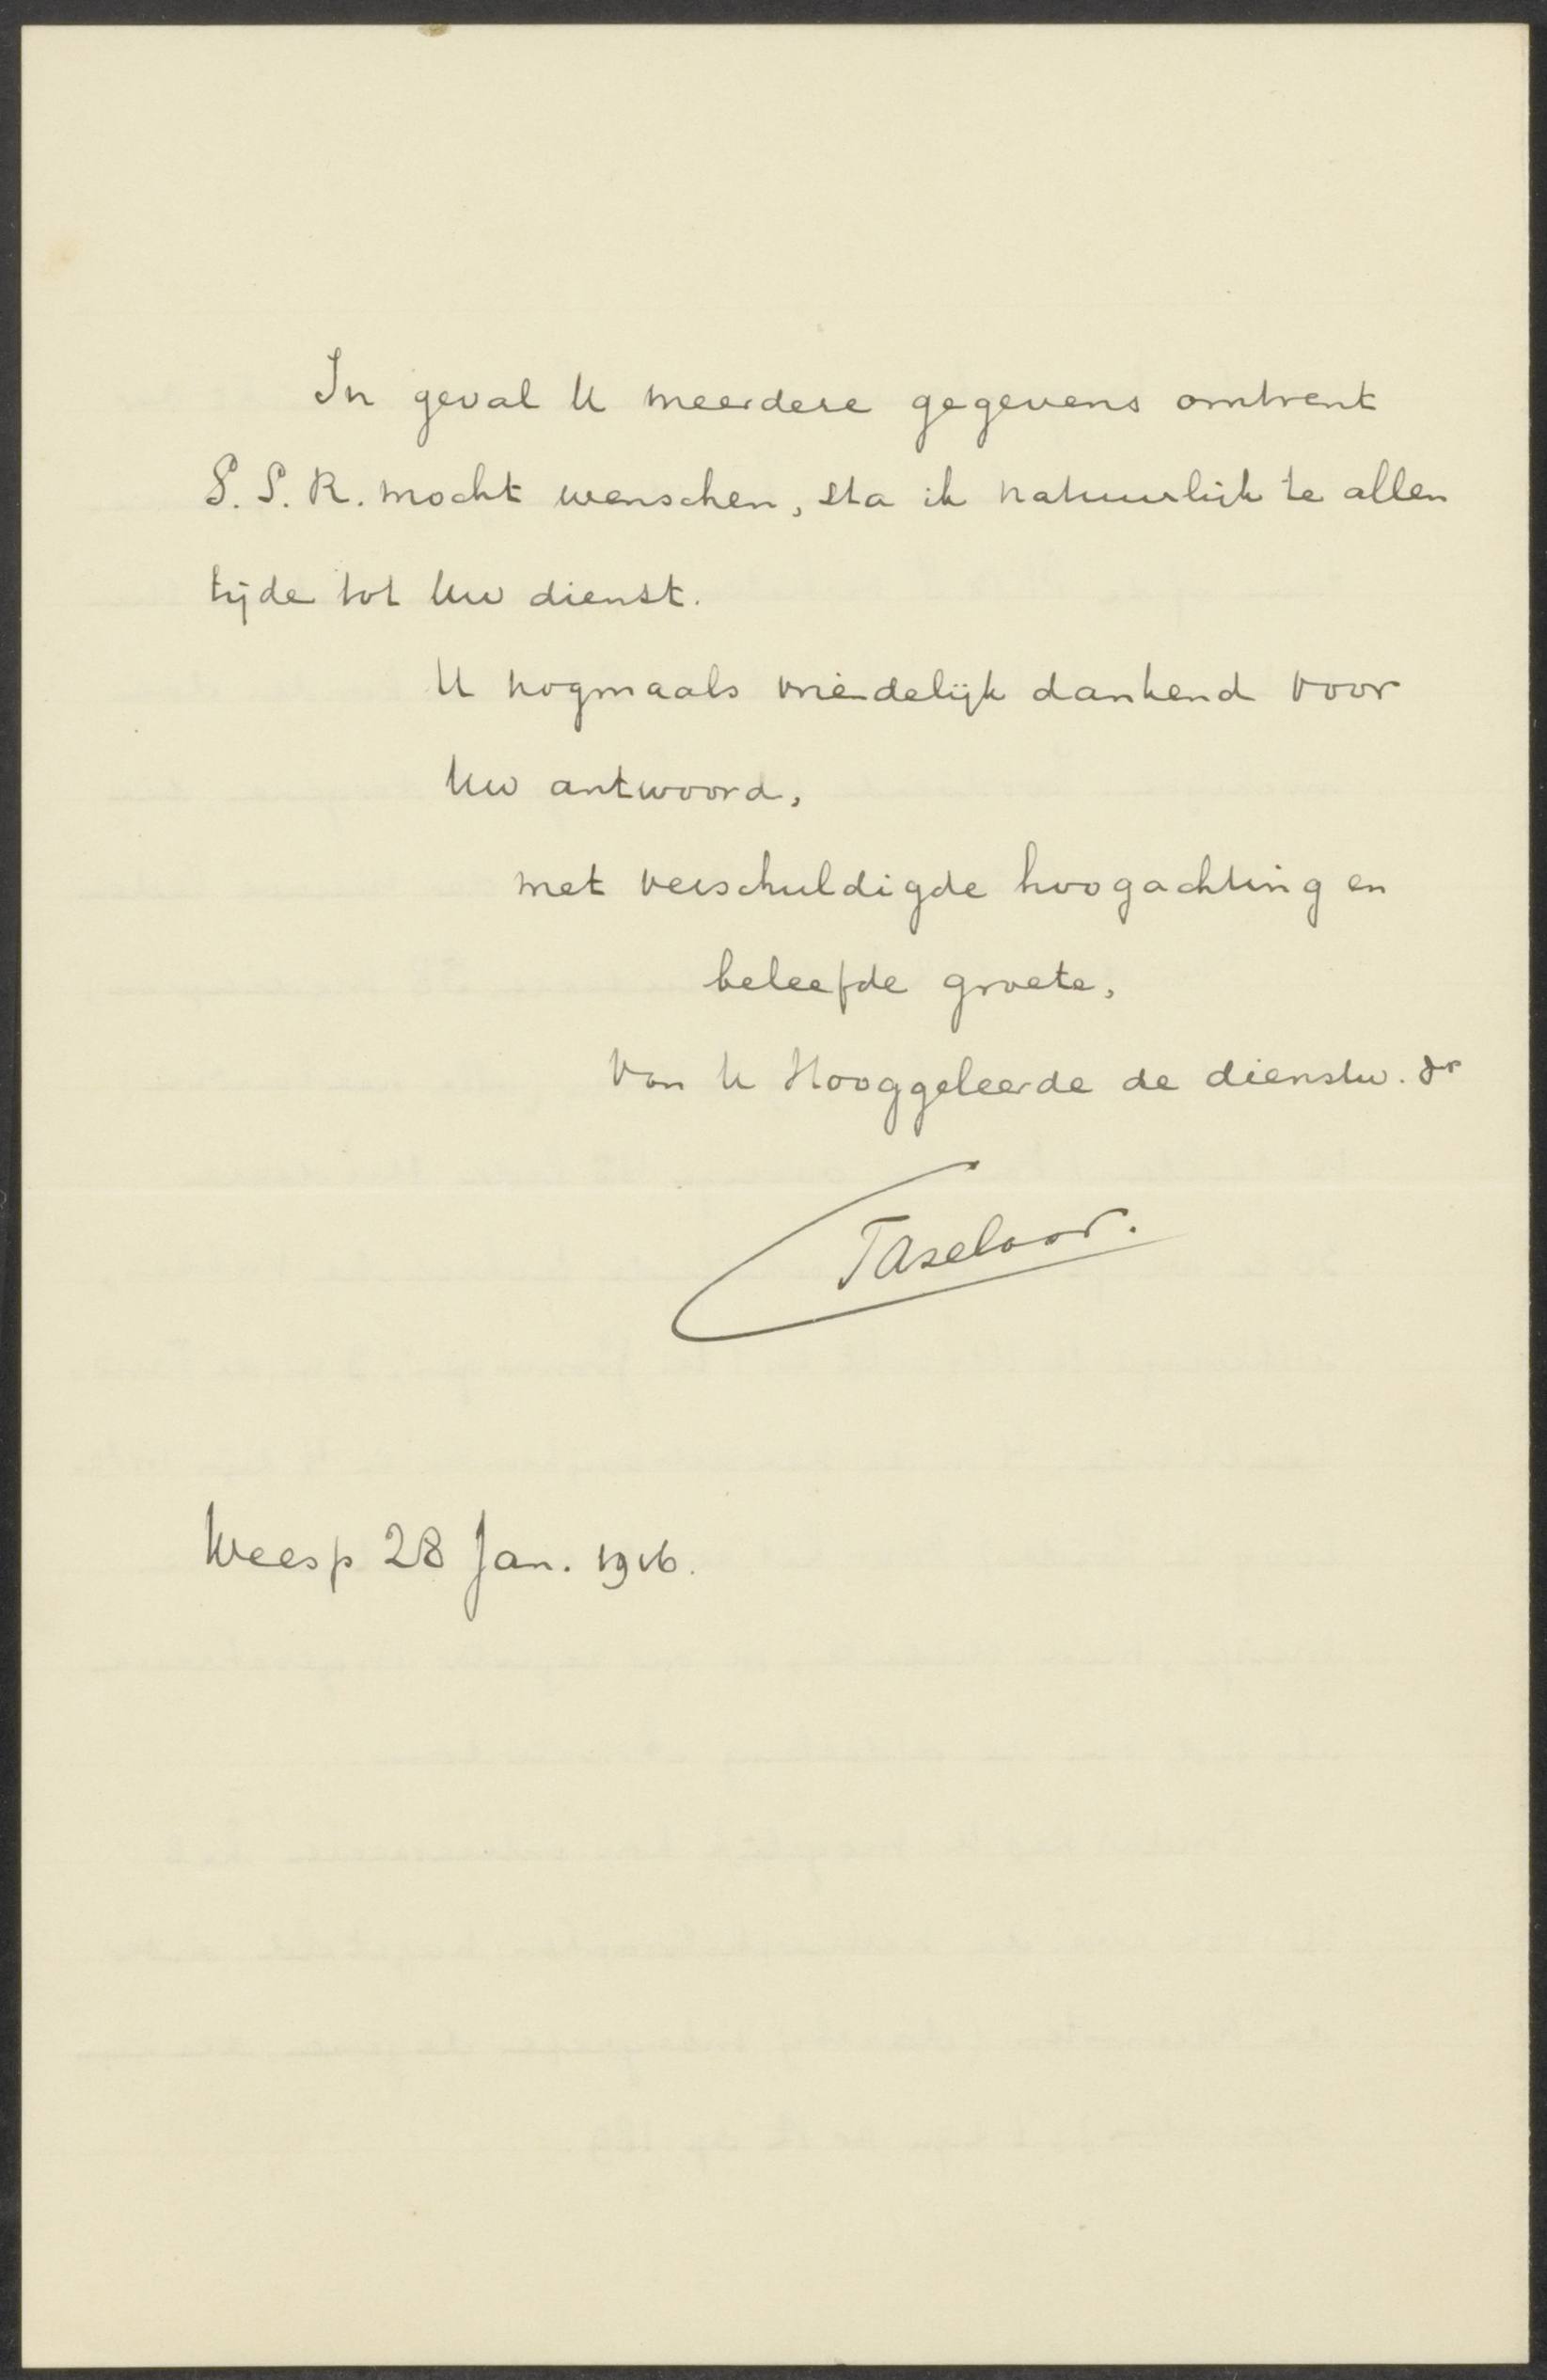 In geval U meerdere gegevens omtrent
S. S. R. mocht wenschen, sta ik natuurlijk te allen
tijde tot Uw dienst.
U nogmaals vriendelijk dankend voor
Uw antwoord,
met verschuldigde hoogachting en
beleefde groete,
van U Hooggeleerde de dienstw. dr
Taselaar.
Weesp 28 Jan. 1916.